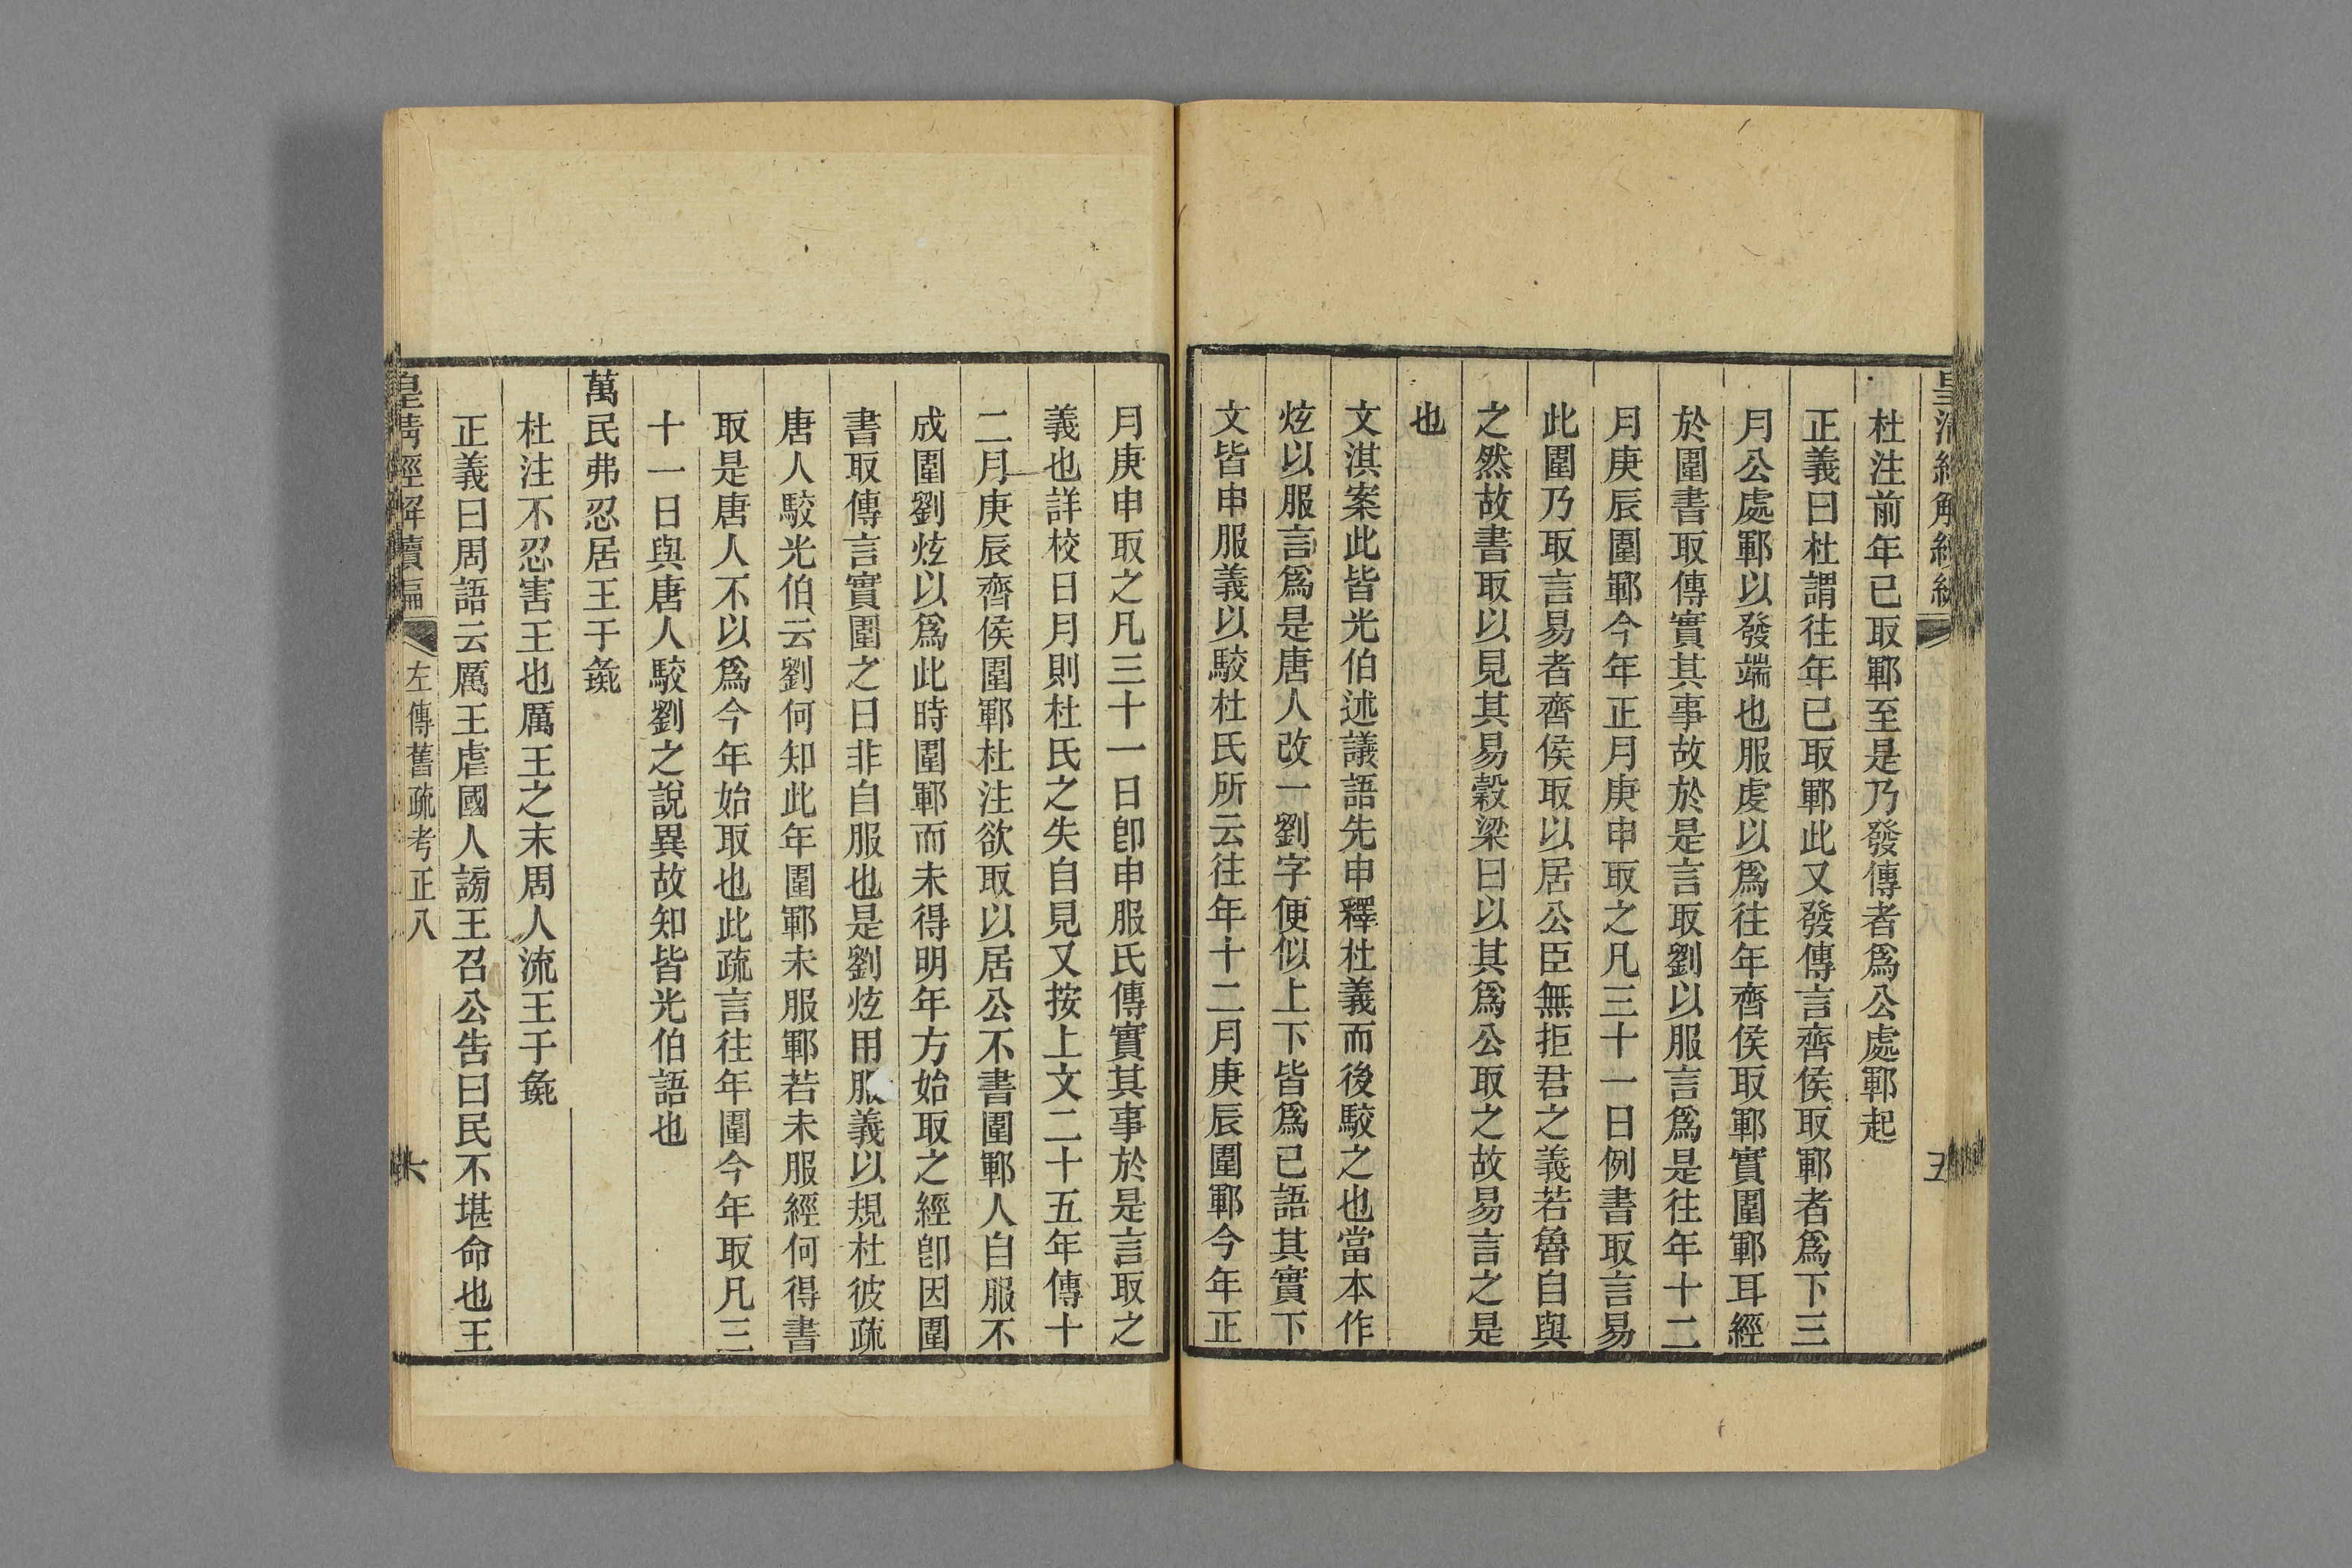 杜注前年已取鄆至是乃發傳者爲公處鄆起
正義曰杜謂往年已取鄆此又發傳言齊侯取鄆者爲下三
月公處鄆以發端也服虔以爲往年齊侯取鄆實圍鄆耳經
於圍書取傳實其事故於是言取劉以服言爲是往年十二
月庚辰圍鄆今年正月庚申取之凡三十一日例書取言易
此圍乃取言易者齊侯取以居公臣無拒君之義若魯自與
之然故書取以見其易穀梁曰以其爲公取之故易言之是
也
文淇案此皆光伯述議語先申釋杜義而後駮之也當本作
炫以服言爲是唐人改一劉字便似上下皆爲已語其實下
文皆申服義以駮杜氏所云往年十二月庚辰圍鄆今年正
月庚申取之凡三十一日卽申服氏傳實其事於是言取之
義也詳校日月則杜氏之失自見又按上文二十五年傳十
二月庚辰齊侯圍鄆杜注欲取以居公不書圍鄆人自服不
成圍劉炫以爲此時圍鄆而未得明年方始取之經卽因圍
書取傳言實圍之日非自服也是劉炫用服義以規杜彼疏
唐人駮光伯云劉何知此年圍鄆未服鄆若未服經何得書
取是唐人不以爲今年始取也此疏言往年圍今年取凡三
十一日與唐人駮劉之說異故知皆光伯語也
萬民弗忍居王于彘
杜注不忍害王也厲王之末周人流王于彘
正義曰周語云厲王虐國人謗王召公告曰民不堪命也王
皇清經解續編
左傳舊疏考正八
六